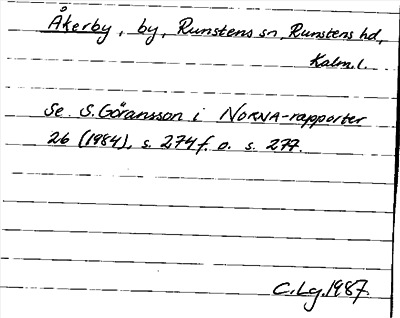 Åkerby, by, Runstens sn, Runstens hd,
Kalm. l.
Se S. Göransson i NORNA-rapporter
26 (1984), s. 274 f. o. s. 277.
C. Lg. 1987.